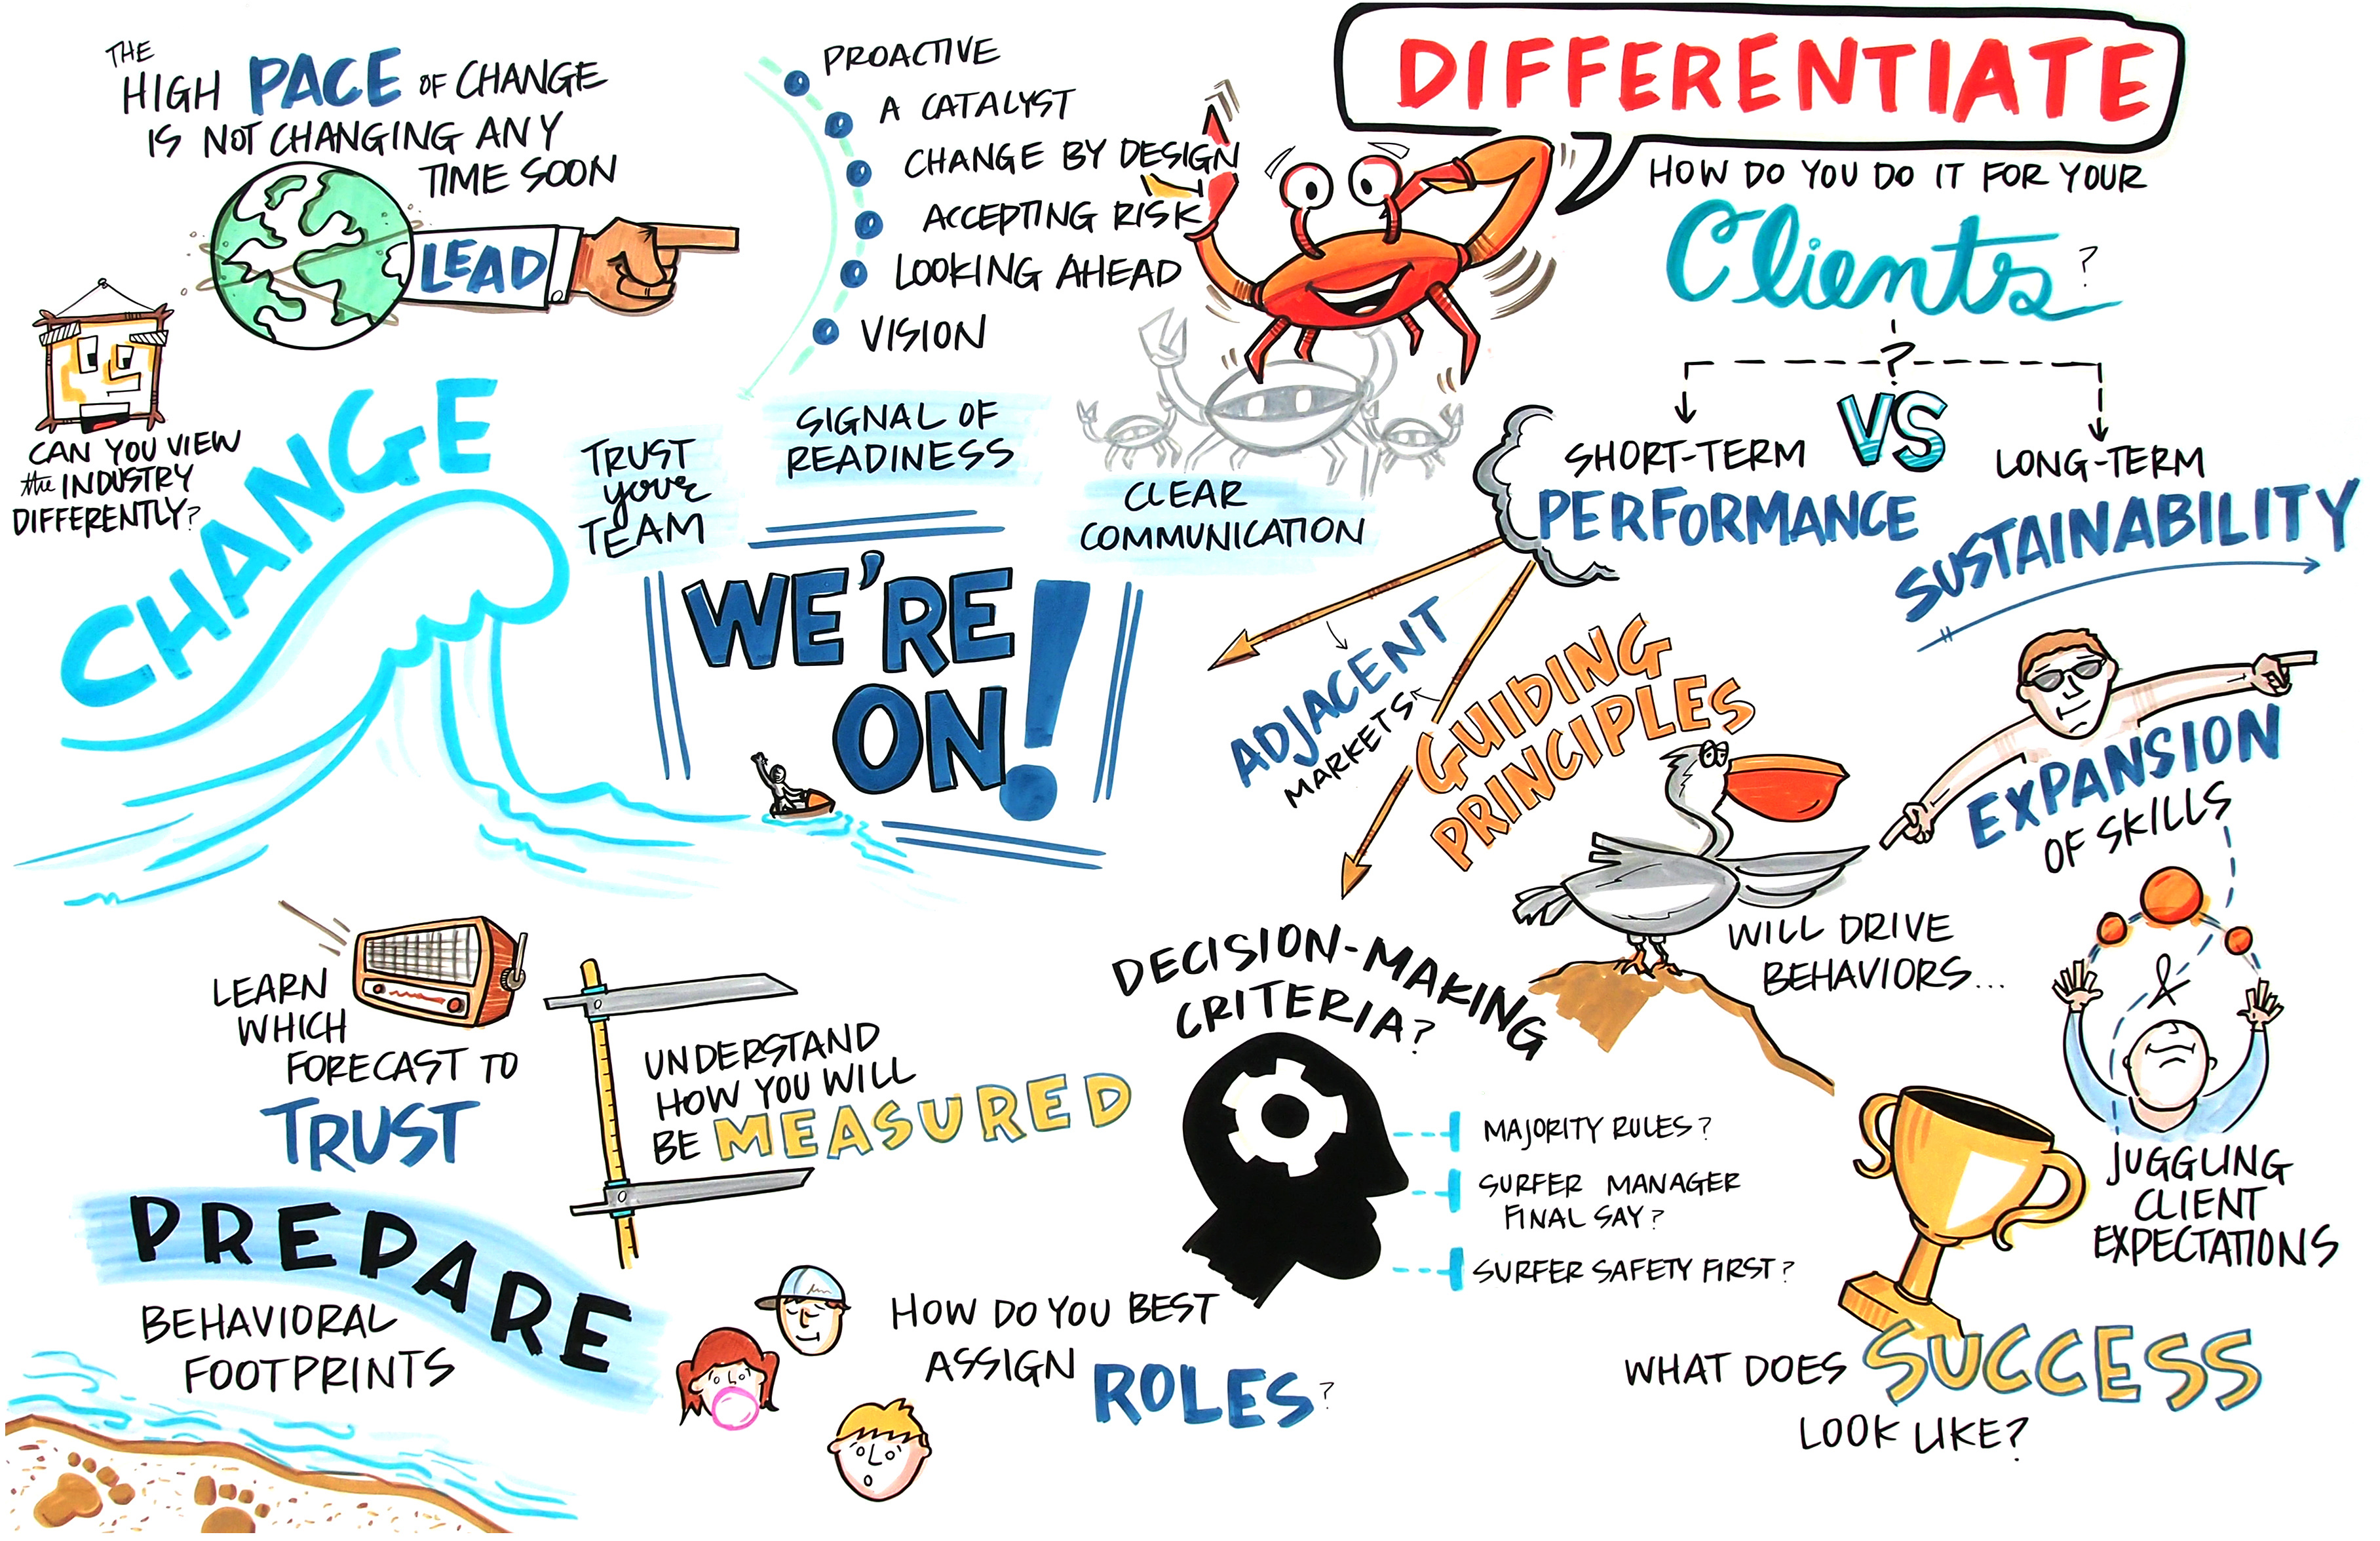 THE
HIGH PACE OF CHANGE
IS NOT CHANGING ANY
TIME SOON
LEAD
PROACTIVE
A CATALYST
CHANGE BY DESIGN
ACCEPTING RISK
LOOKING AHEAD
VISION
DIFFERENTIATE
HOW DO YOU DO IT FOR YOUR
Clients?
?
SHORT-TERM
PERFORMANCE
VS
LONG-TERM
SUSTAINABILITY
CAN YOU VIEW
the INDUSTRY
DIFFERENTLY?
CHANGE
TRUST
your
TEAM
SIGNAL OF
READINESS
CLEAR
COMMUNICATION
WE'RE
ON!
ADJACENT
MARKETS
GUIDING
PRINCIPLES
WILL DRIVE
BEHAVIORS...
EXPANSION
OF SKILLS
&
JUGGLING
CLIENT
EXPECTATIONS
LEARN
WHICH
FORECAST TO
TRUST
UNDERSTAND
HOW YOU WILL
BE MEASURED
DECISION-MAKING
CRITERIA?
MAJORITY RULES?
SURFER MANAGER
FINAL SAY?
SURFER SAFETY FIRST?
PREPARE
BEHAVIORAL
FOOTPRINTS
HOW DO YOU BEST
ASSIGN ROLES?
WHAT DOES SUCCESS
LOOK LIKE?